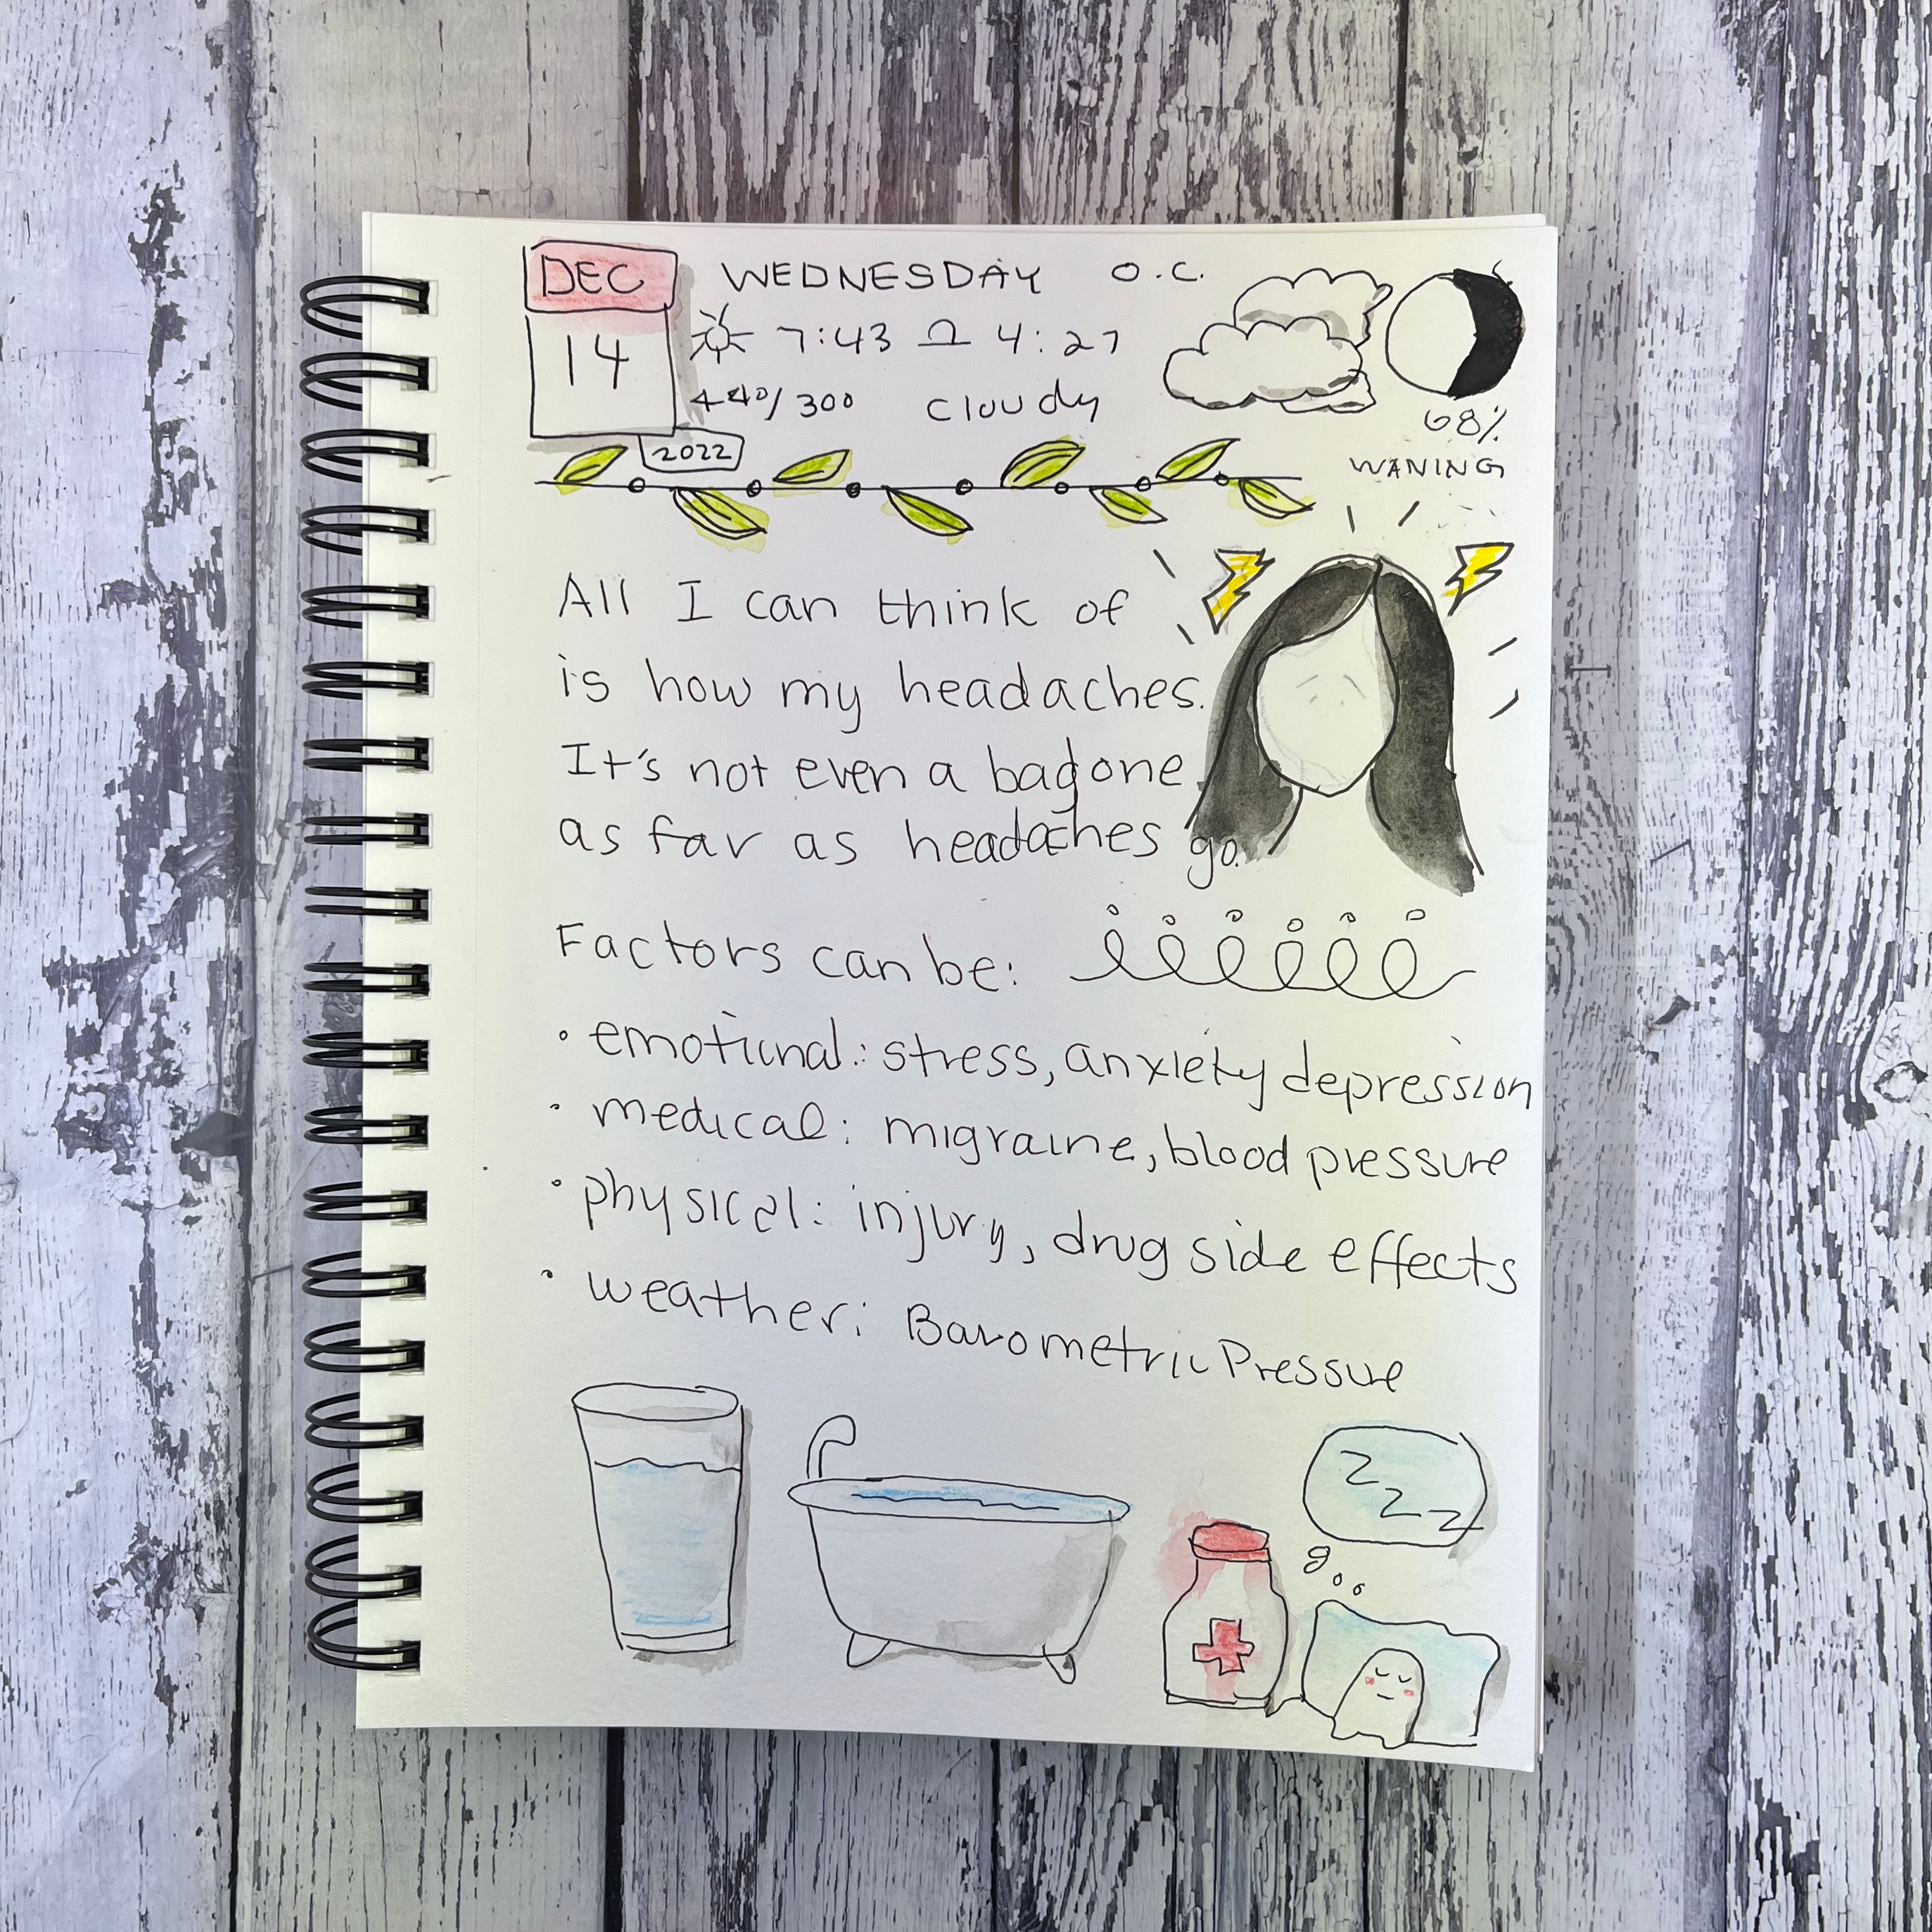 DEC WEDNESDAY O.C.
14 7:43 4:27
44°/30° cloudy
68%
2022
WANING
All I can think of
is how my headaches.
It's not even a bad one
as far as headaches go.
Factors can be:
• emotional: stress, anxiety depression
• medical: migraine, blood pressure
• physical: injury, drug side effects
• weather: Barometric Pressure
z z z